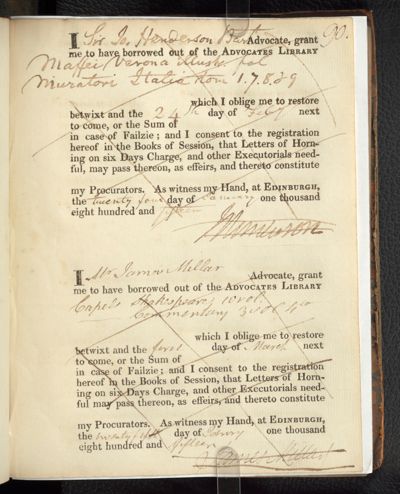 90.
I Sir Jo. Henderson Bart Advocate, grant
me to have borrowed out of the ADVOCATES LIBRARY
Maffei Verona Illustr fol
Muratori Italia tom 1.7.8.29
which I oblige me to restore
betwixt and the 24 day of Feby next
to come, or the Sum of
in case of Failzie; and I consent to the registration
hereof in the Books of Session, that Letters of Horn-
ing on six Days Charge, and other Executorials need-
ful, may pass thereon, as effeirs, and thereto constitute
my Procurators. As witness my Hand, at EDINBURGH,
the twenty four day of January one thousand
eight hundred and fifteen
I Mr James Millar Advocate, grant
me to have borrowed out of the ADVOCATES LIBRARY
Capel's Shakespeare; 10 vol.
Commentary 3 vol 4to
which I oblige me to restore
betwixt and the first day of March next
to come, or the Sum of
in case of Failzie; and I consent to the registration
hereof in the Books of Session, that Letters of Horn-
ing on six Days Charge, and other Executorials need-
ful may pass thereon, as effeirs, and thereto constitute
my Procurators. As witness my Hand, at EDINBURGH,
the twenty fifth day of one thousand
eight hundred and fifteen